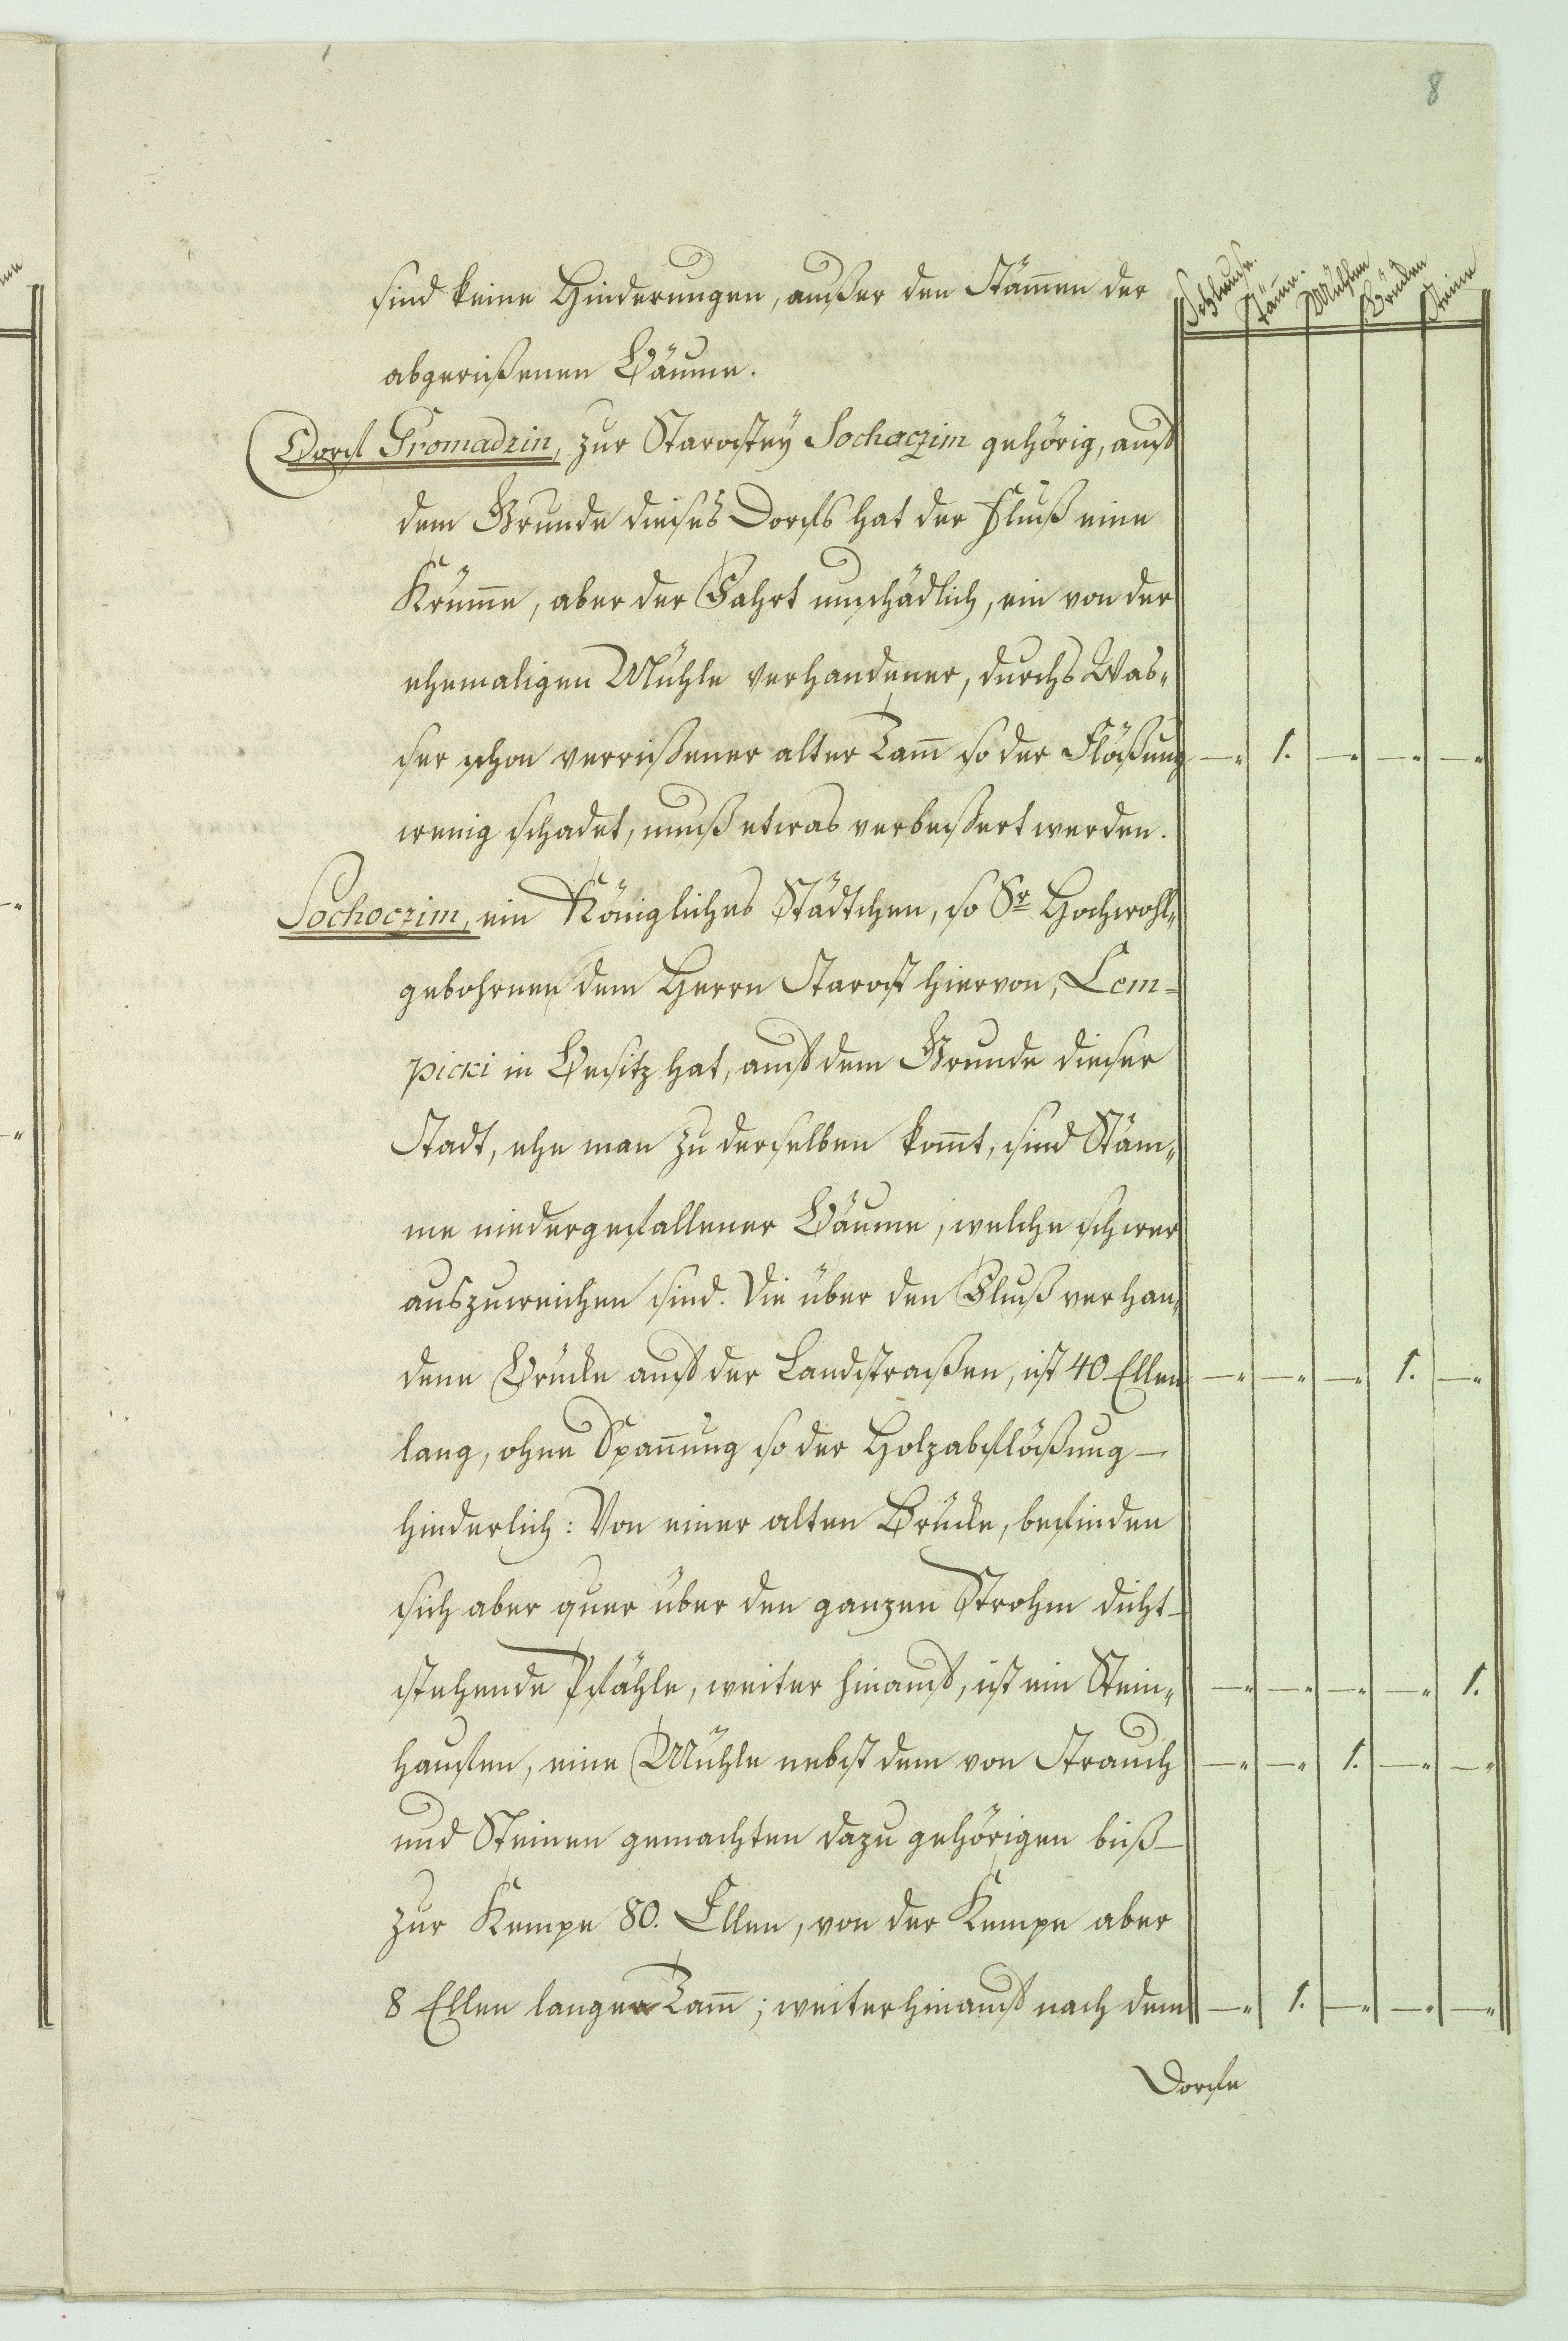 8
Schleuse. Täme. Mühlen Brüken Steine
sind keine Hinderungen, außer den Stäm̄en der
abgerißenen Bäume.
Dorf Gromadzin, zur Starostey Sochaczim gehörig, auf
dem Grunde dieses Dorfs hat der Fluß eine
Krüm̄e, aber der Fahrt unschädlich, ein von der
ehemaligen Mühle verhandener, durchs Was„
ser schon verrißener alter Tam̄ so der Flößung —„ 1. —„ —„ —„
wenig schadet, muß etwas verbeßert werden.
Sochoczim, ein Königliches Städtchen, so Sr Hochwohl„
gebohrnen dem Herrn Starost hiervon, Lem=
picki in Besitz hat, auf dem Grunde dieser
Stadt, ehe man zu derselben kom̄t, sind Stäm„
me niedergefallener Bäume, welche schwer
auszuweichen sind. Die über den Fluß verhan„
dene Brücke auf der Landstraßen, ist 40 Ellen —„ —„ —„ 1. —„
lang, ohne Span̄ung so der Holzabflößung —
hinderlich: Von einer alten Brücke, befinden
sich aber quer über den ganzen Strohm dicht —
stehende Pfähle, weiter hinauf, ist ein Stein„ —„ —„ —„ —„ 1.
haufen, eine Mühle nebst dem von Strauch —„ —„ 1. —„ —„
und Steinen gemachten dazu gehörigen biß —
zur Kempe 80. Ellen, von der Kempe aber
8 Ellen langer Tam̄; weiterhinauf nach dem —„ 1. —„ —„ —„
Dorfe